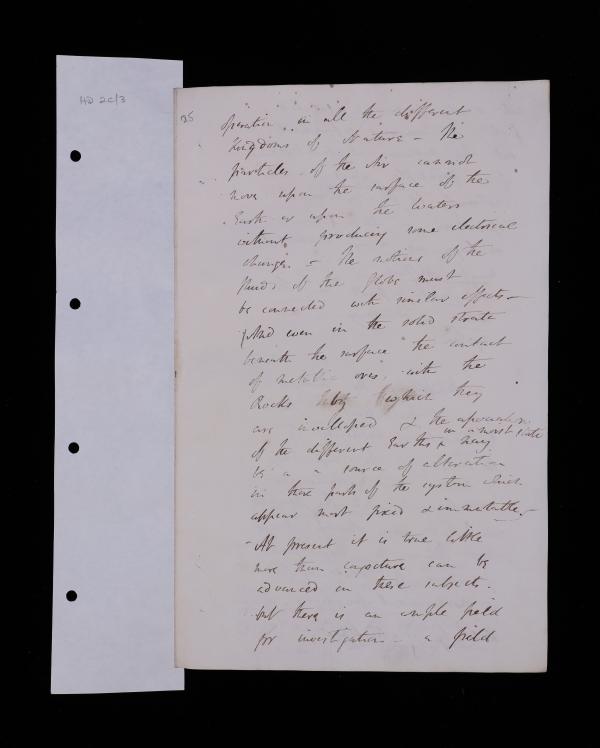 HD 2c/3
25
operation in all the different
Kingdoms of Nature - The
particles of the Air cannot
move upon the surface of the
Earth or upon the Waters
without producing some electrical
changes - The motions of the
fluids of the Globe must
be connected with similar effects -
And even in the solid strata
beneath the surface the contact
of metallic ores with the
Rocks by which they
are enveloped & the association
in a moist state
of the different Earths may
be a source of alteration
in those parts of the system which
appear most fixed & immutable. -
- At present it is true little
more than conjecture can be
advanced on these subjects.
but there is an ample field
for investigation - a field